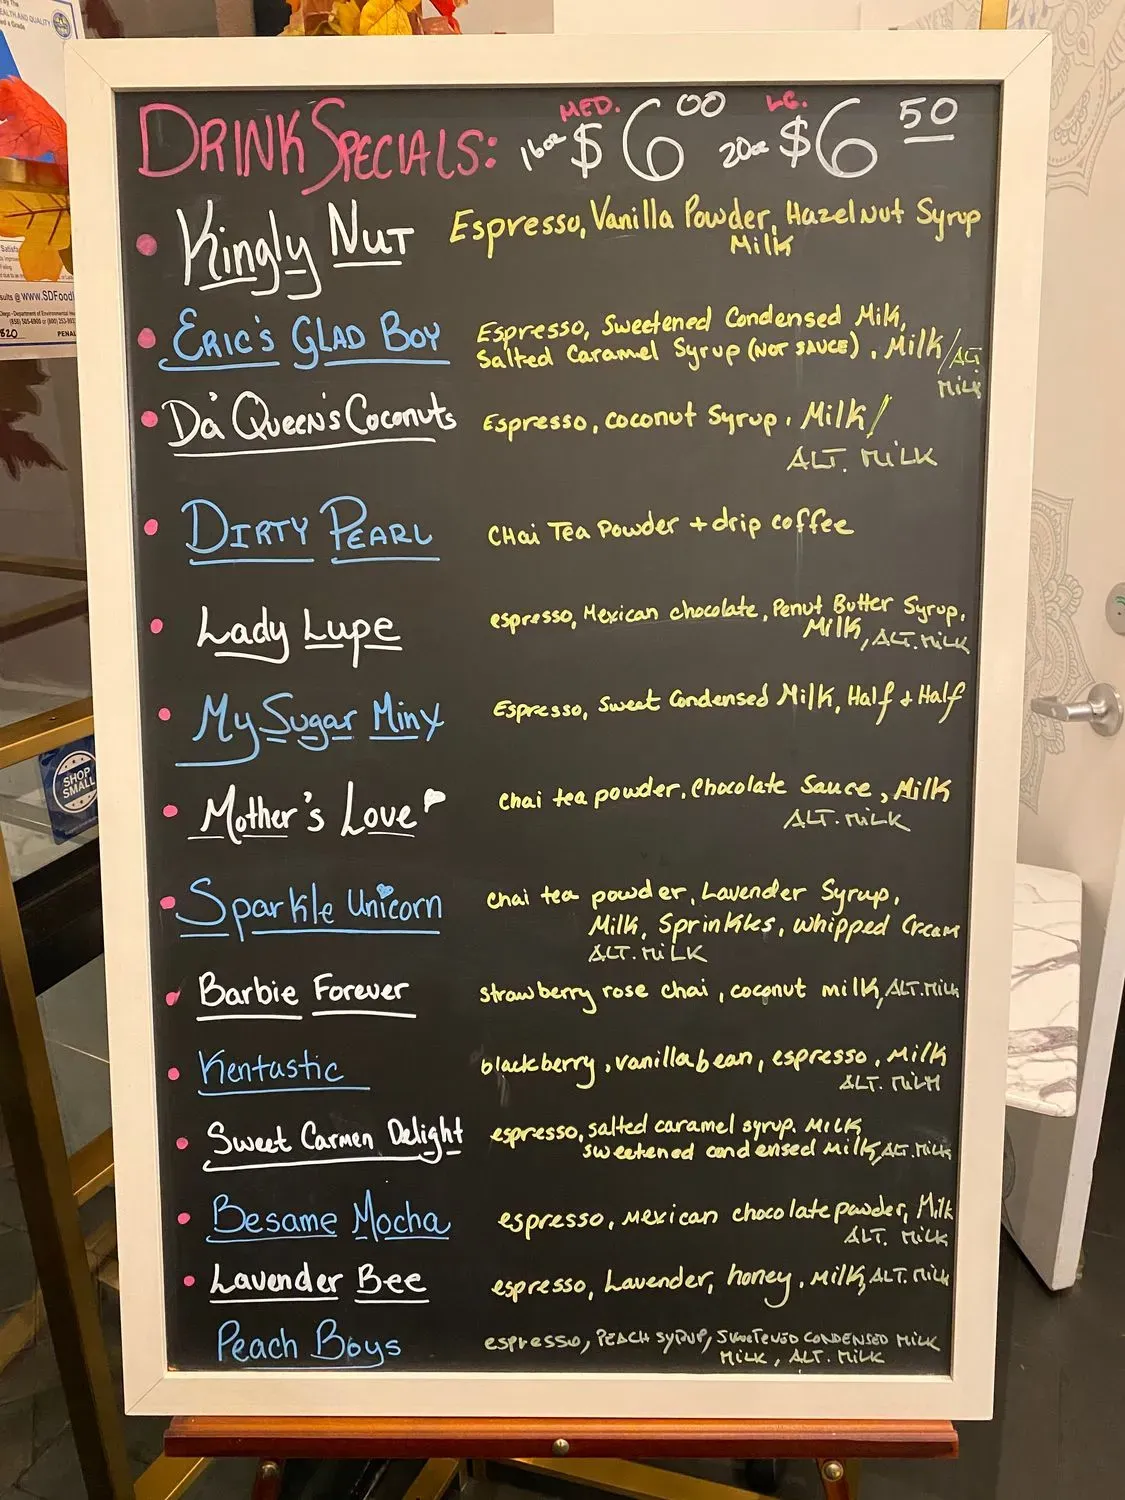 DRINK SPECIALS: 16oz MED. $6 00 20oz LG. $6 50
Kingly Nut Espresso, Vanilla Powder, Hazelnut Syrup
Milk
Eric's Glad Boy Espresso, Sweetened Condensed Milk,
Salted Caramel Syrup (NOT SAUCE), Milk/ALT
MILK
Da' Queen's Coconuts Espresso, coconut Syrup, Milk/
ALT. MILK
Dirty Pearl CHai Tea Powder + drip coffee
Lady Lupe espresso, Mexican chocolate, Penut Butter Syrup,
Milk, ALT. MILK
My Sugar Miny Espresso, Sweet Condensed Milk, Half & Half
Mother's Love chai tea powder, Chocolate Sauce, Milk
ALT. MILK
Sparkle Unicorn chai tea powder, Lavender Syrup,
Milk, Sprinkles, whipped Cream
ALT. MILK
Barbie Forever strawberry rose chai, coconut milk, ALT. MILK
Kentastic blackberry, vanilla bean, espresso, Milk
ALT. MILK
Sweet Carmen Delight espresso, salted caramel syrup. MILK
sweetened condensed Milk, ALT. MILK
Besame Mocha espresso, Mexican chocolate powder, Milk
ALT. MILK
Lavender Bee espresso, Lavender, honey, Milk, ALT. MILK
Peach Boys espresso, PEACH SYRUP, SWEETENED CONDENSED MILK
MILK, ALT. MILK
SHOP
SMALL